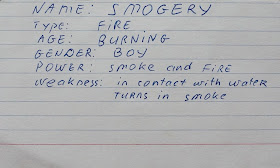 NAME: SMOGERY
TYPE: FiRE
AGE: BURNING
GENDER: BOY
POWER: SMOKE and FiRE
WEAKNESS: in contact with WATER
TURNS in SMOKE